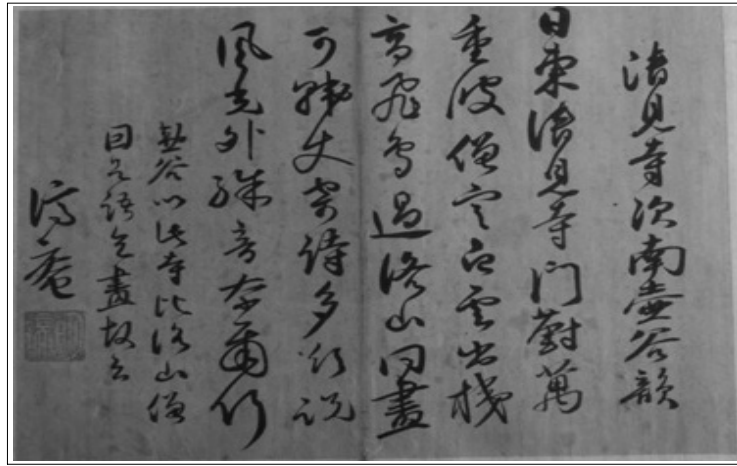 清見寺次南壺谷韻
日東清見寺門對萬
重波僧定白雲出棧
高飛鳥過洛山同畫
可丈寄詩多欲說
風光外殊音奈爾何
壺谷以此寺比洛山僧
因其語乞畫故云
濟菴